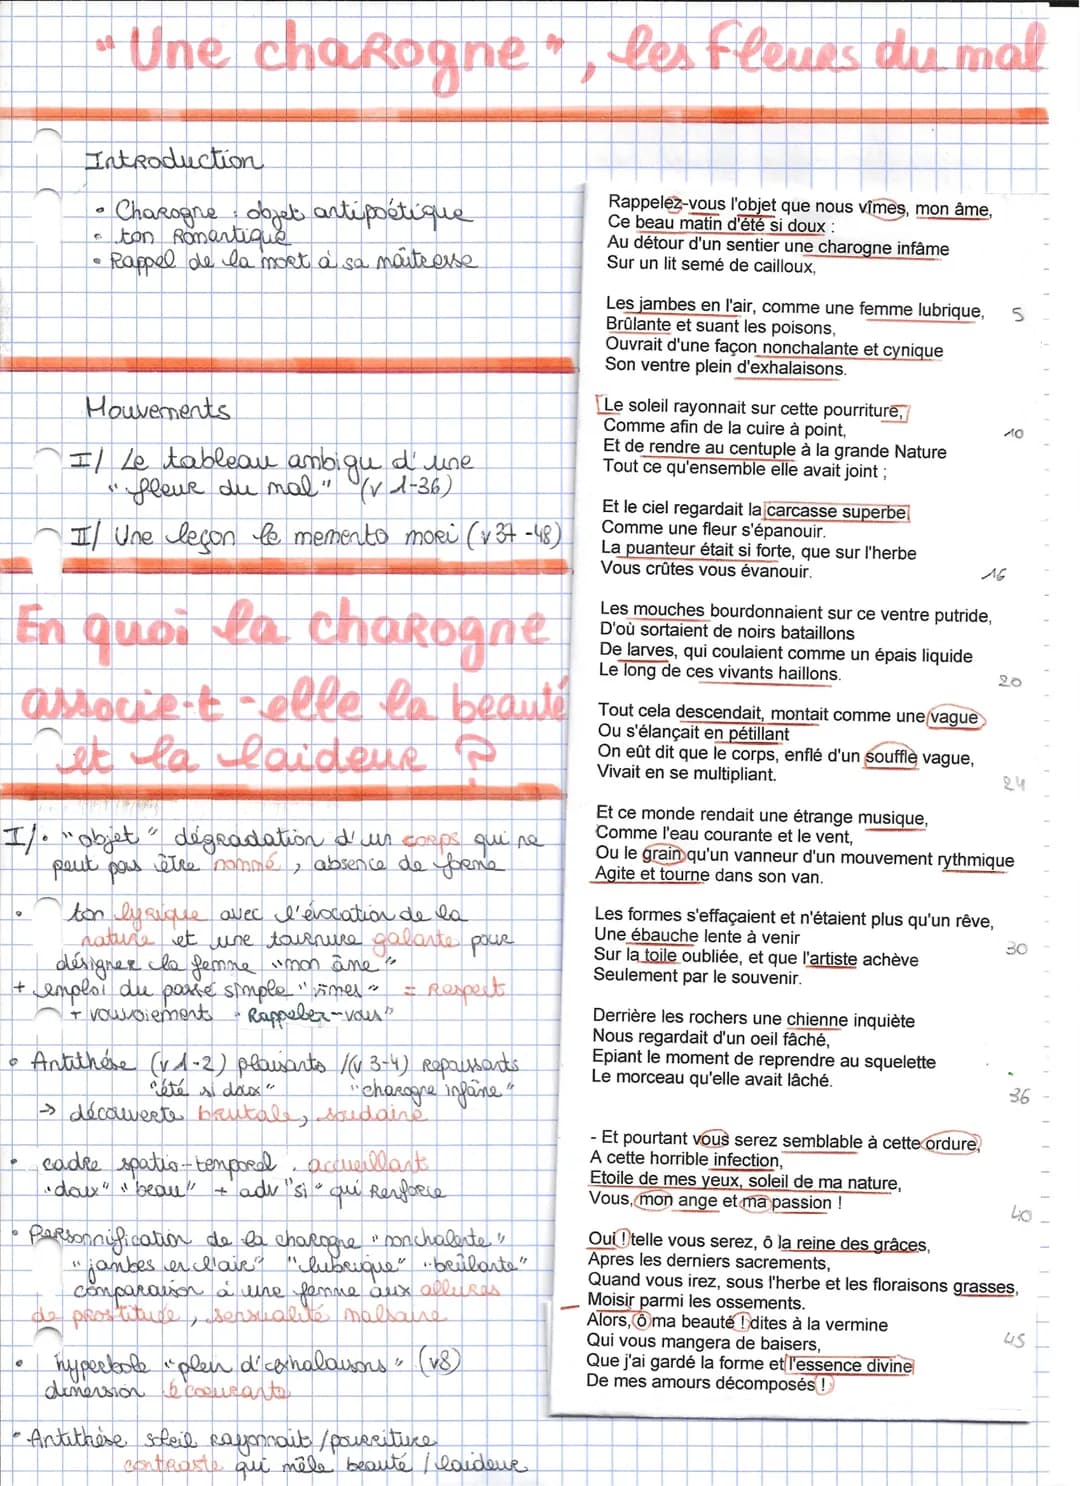 "Une chaRogne", les fleurs du mal
IntRoduction
• ChaRogne : objet antipoétique
• ton Romantique
• Rappel de la mort à sa maîtresse
Mouvements
I/ Le tableau ambigu d'une
"fleur du mal" (v 1-36)
II/ Une leçon le memento mori (v 37-48)
En quoi la chaRogne
associe-t-elle la beauté
et la laideur ?
I/ • "objet" dégradation d'un corps qui ne
peut pas être nommé, absence de forme
• ton lyrique avec l'évocation de la
nature et une tournure galante pour
désigner la femme "mon âme"
+ emploi du passé simple "vîmes" = Respect
+ vouvoiements "Rappelez-vous"
• Antithèse (v 1-2) plaisants /(v 3-4) Repoussants
"été si doux" "charogne infâme"
→ découverte brutale, soudaine
• cadre spatio-temporel : accueillant
"doux" "beau" + adv "si" qui Renforce
• Personnification de la charogne "nonchalente"
"jambes en l'air" "lubrique" "brûlante"
comparaison à une femme aux allures
de prostituée, sensualité malsaine
• hyperbole "plein d'exhalaisons" (v8)
dimension écoeurante
• Antithèse soleil rayonnait / pourriture
contraste qui mêle beauté / laideur
Rappelez-vous l'objet que nous vîmes, mon âme,
Ce beau matin d'été si doux :
Au détour d'un sentier une charogne infâme
Sur un lit semé de cailloux,
Les jambes en l'air, comme une femme lubrique, 5
Brûlante et suant les poisons,
Ouvrait d'une façon nonchalante et cynique
Son ventre plein d'exhalaisons.
Le soleil rayonnait sur cette pourriture,
Comme afin de la cuire à point, 10
Et de rendre au centuple à la grande Nature
Tout ce qu'ensemble elle avait joint ;
Et le ciel regardait la carcasse superbe
Comme une fleur s'épanouir.
La puanteur était si forte, que sur l'herbe
Vous crûtes vous évanouir. 16
Les mouches bourdonnaient sur ce ventre putride,
D'où sortaient de noirs bataillons
De larves, qui coulaient comme un épais liquide
Le long de ces vivants haillons. 20
Tout cela descendait, montait comme une vague
Ou s'élançait en pétillant
On eût dit que le corps, enflé d'un souffle vague,
Vivait en se multipliant. 24
Et ce monde rendait une étrange musique,
Comme l'eau courante et le vent,
Ou le grain qu'un vanneur d'un mouvement rythmique
Agite et tourne dans son van.
Les formes s'effaçaient et n'étaient plus qu'un rêve,
Une ébauche lente à venir 30
Sur la toile oubliée, et que l'artiste achève
Seulement par le souvenir.
Derrière les rochers une chienne inquiète
Nous regardait d'un oeil fâché,
Epiant le moment de reprendre au squelette
Le morceau qu'elle avait lâché. 36
- Et pourtant vous serez semblable à cette ordure,
A cette horrible infection,
Etoile de mes yeux, soleil de ma nature,
Vous, mon ange et ma passion ! 40
Oui ! telle vous serez, ô la reine des grâces,
Apres les derniers sacrements,
Quand vous irez, sous l'herbe et les floraisons grasses,
Moisir parmi les ossements.
Alors, ô ma beauté ! dites à la vermine
Qui vous mangera de baisers, 45
Que j'ai gardé la forme et l'essence divine
De mes amours décomposés !